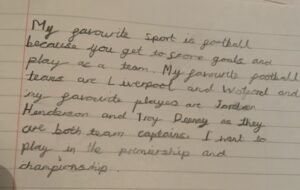 My favourite sport is football
because you get to score goals and
play as a team. My favourite football
teams are Liverpool and Watford and
my favourite players are Jordan
Henderson and Troy Deeney as they
are both team captains. I want to
play in the primership and
championship.